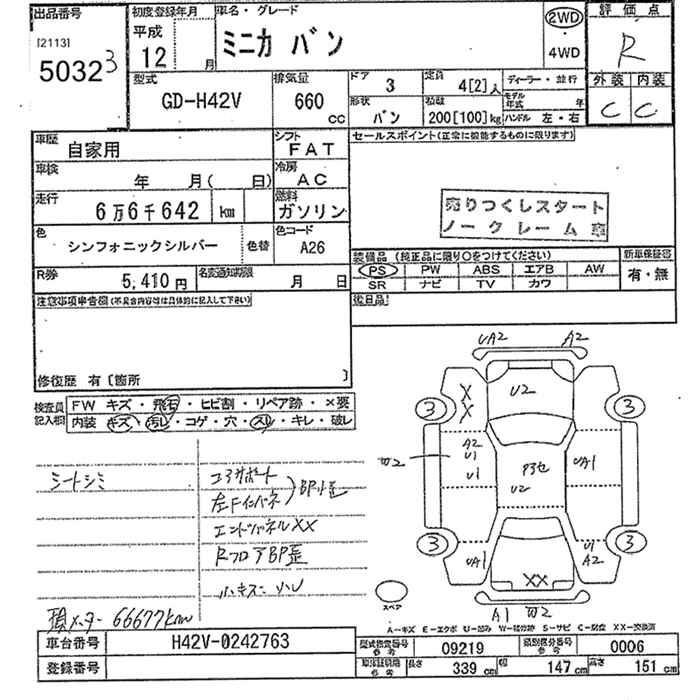 出品番号 初度登録年月 車名・グレード 2WD 評価点
[2113] 平成 ミニカ バン ・ R
50323 12 月 4WD
型式 排気量 ドア 3 定員 4[2]人 ディーラー・並行 外装 内装
GD-H42V 660 cc 形状 バン 積載 200[100]kg モデル年式 年 C C
ハンドル 左・右
車歴 自家用 シフト FAT セールスポイント(正常に機能するものに限ります)
車検 年 月( 日) 冷房 AC
走行 6万6千642 km 燃料 ガソリン 売りつくしスタート
ノークレーム
色 シンフォニックシルバー 色替 色コード A26
装備品 (純正品に限り○をつけてください) 新車保証書
R券 5,410円 名変通知期限 月 日 PS PW ABS エアB AW 有・無
SR ナビ TV カワ
注意事項申告欄(不具合内容等は具体的に記入して下さい) 後日品
修復歴 有〔箇所 〕
検査員記入欄 FW キズ・飛石・ヒビ割・リペア跡・×要
内装 キズ・汚し・コゲ・穴・スレ・キレ・破レ
UA2 A2
X U2
X
3 3
A2
U1
U1 P3セ UA1
U2
シートシミ コアサポート
左Fインパネ BP小歪
エンドパネルXX
RフロアBP歪
小キズ・凹
3 3
UA1 U1
A2
XX
スペア
A1
現メーター 66677km
A-キズ E-エクボ U-凹み W-補修跡 S-サビ C-腐食 XX-交換済
車台番号 H42V-0242763 型式指定番号 参考 09219 類別区分番号 参考 0006
登録番号 車体証明 参考 長さ 339 cm 幅 147 cm 高さ 151 cm